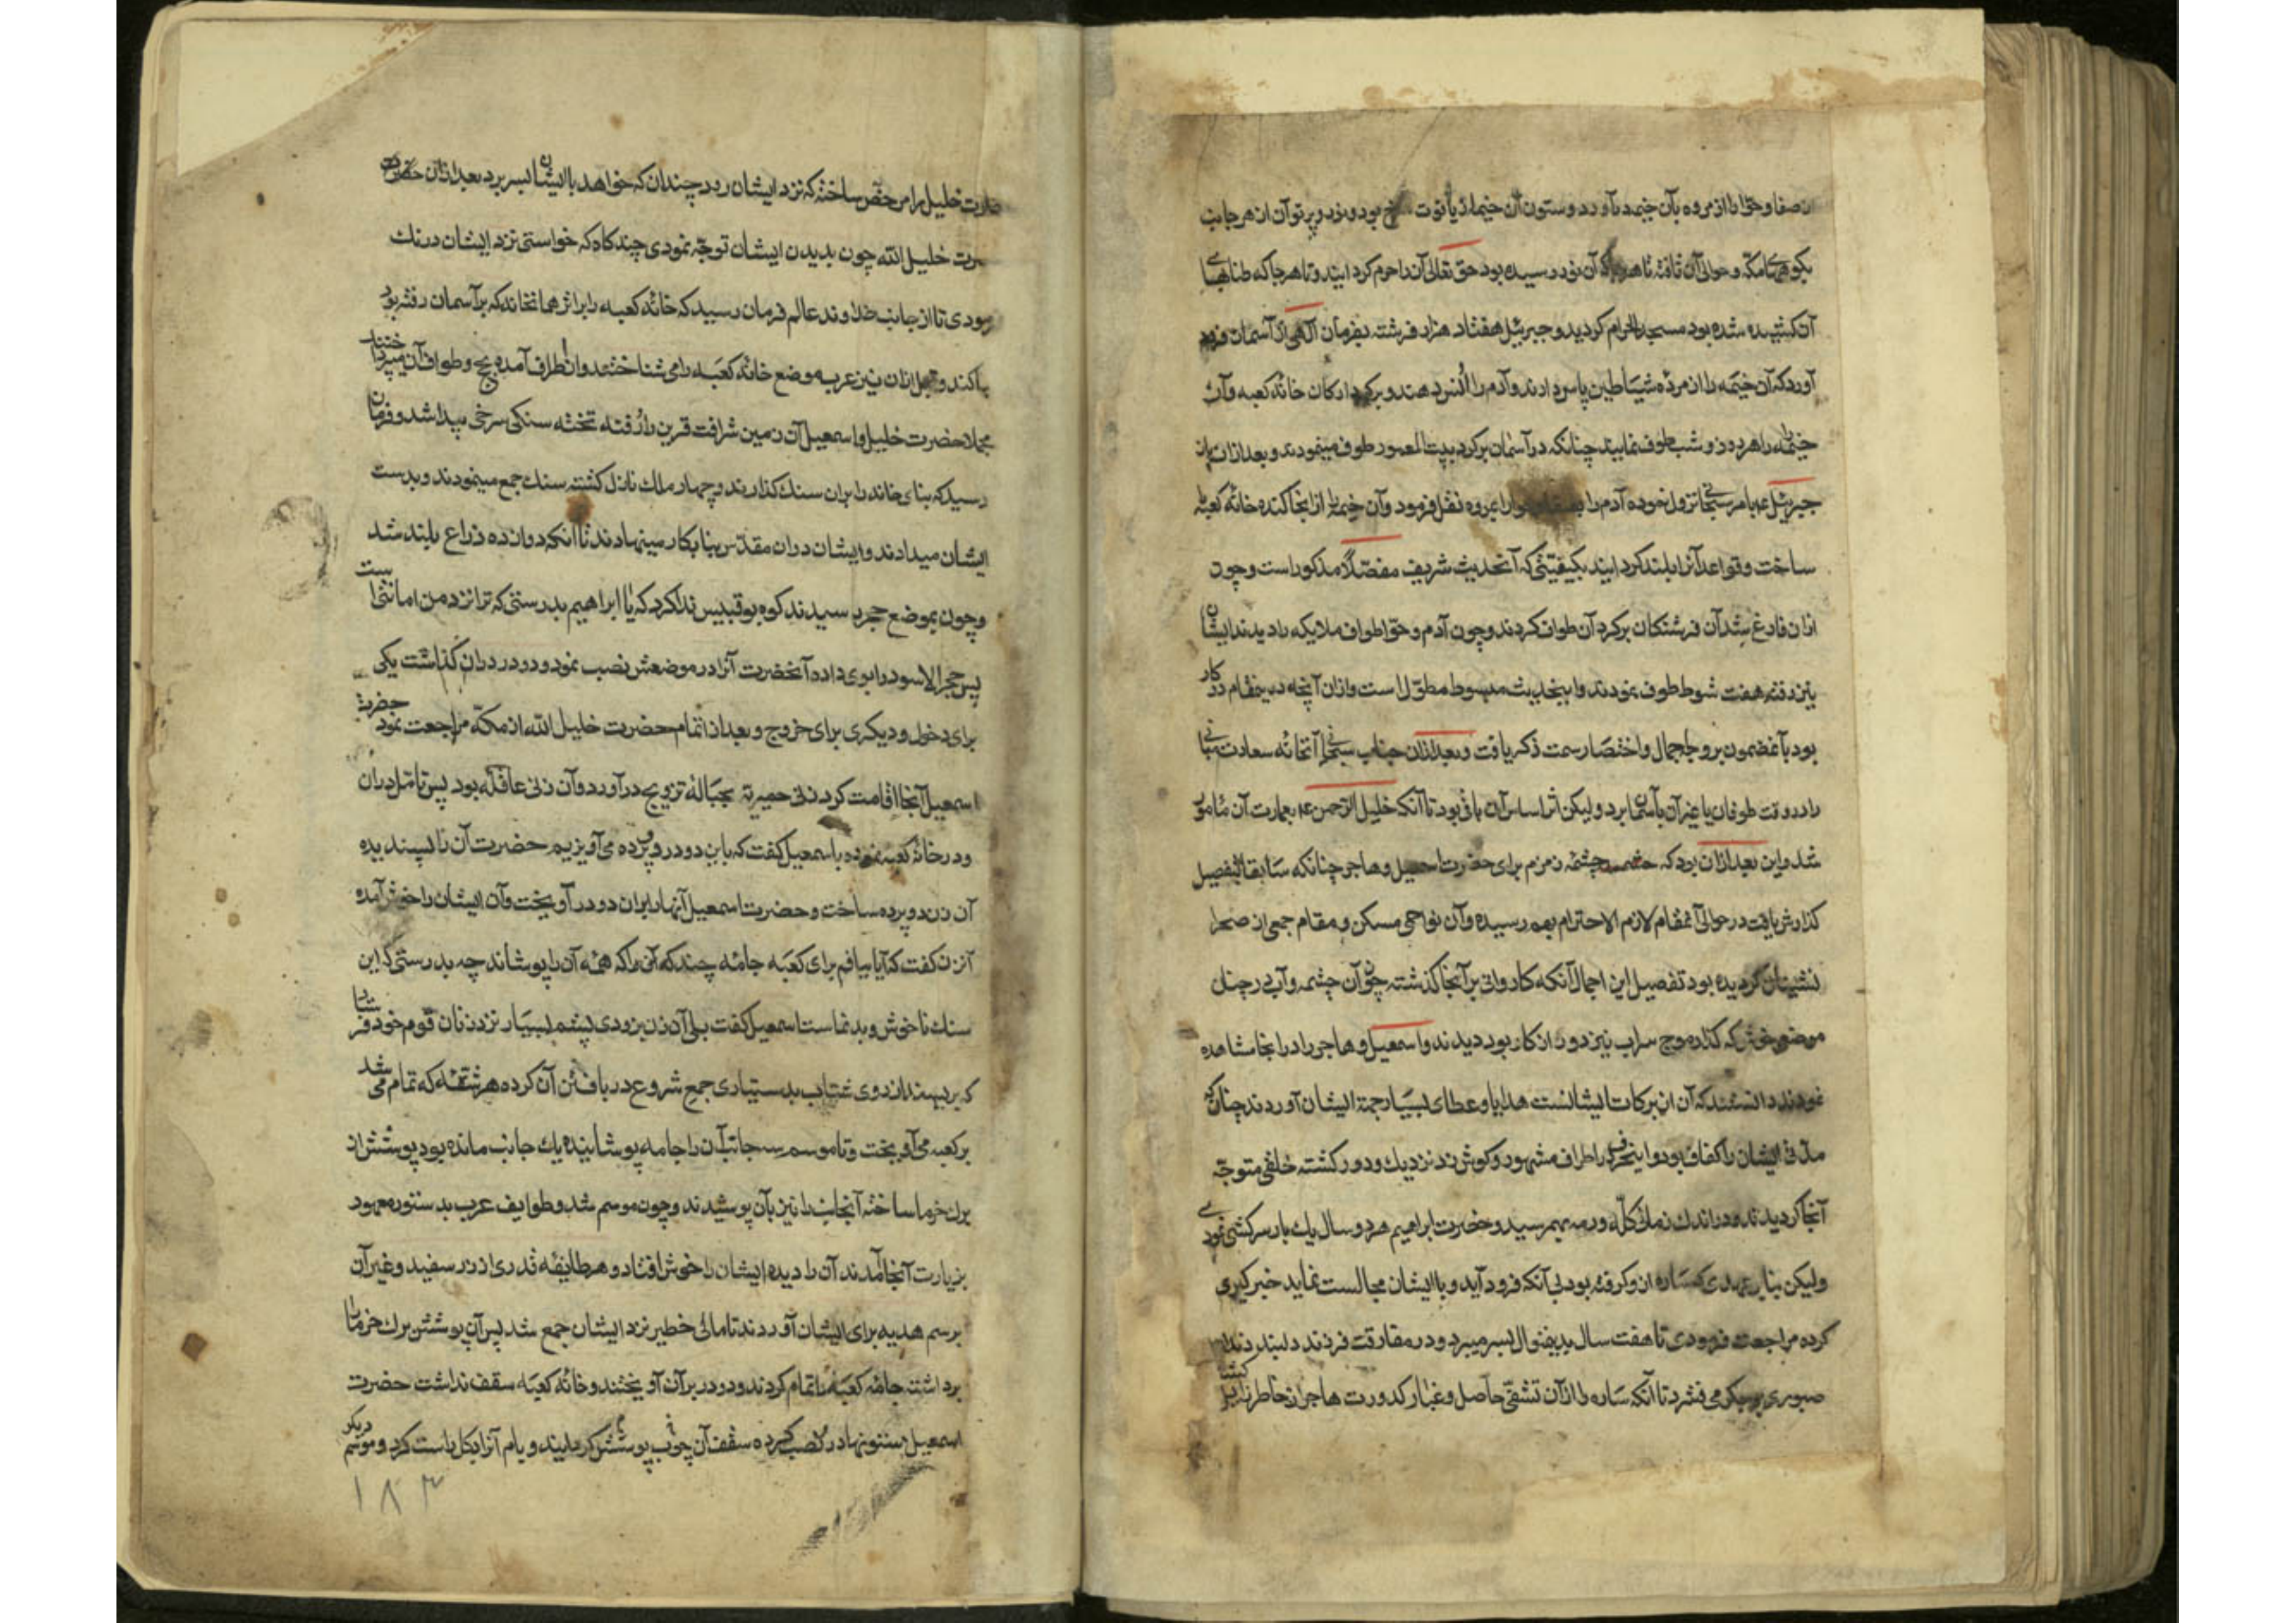 از صفا و حوّا را از مروه بآن خیمه درآورد و ستون آن خیمه از یاقوت سرخ بود و نور و پرتو آن از هر جانب
بکوههای مکه و حوالی آن تافته تا هرجا که آن نور رسیده بود حق تعالی آن را حرم گردانید و تا هرجا که طنابهای
آن کشیده شده بود مسجد الحرام گردید و جبرئیل هفتاد هزار فرشته بفرمان الهی از آسمان فرود
آورد که آن خیمه را از مرده شیاطین پاس دارند و آدم را انس دهند و بر گرد ارکان خانه کعبه و آن
خیمه را هر روز و شب طوف نمایند چنانکه در آسمان بر گرد بیت المعمور طوف مینمودند و بعد از آن باز
جبرئیل ع بامر سبحانی نزول نموده آدم را بصفا و حوا را بمروه نقل فرمود و آن خیمه را از آنجا کنده خانه کعبه
ساخت و قواعد آنرا بلند گردانید بکیفیتی که آنحدیث شریف مفصّلاً مذکور است و چون
از آن فارغ شد آن فرشتگان بر گرد آن طواف کردند و چون آدم و حوّا طواف ملایکه را دیدند ایشان
نیز رفته هفت شوط طوف نمودند و اینحدیث مبسوط مطوّل است و از آن آنچه در ینمقام در کار
بود بآنمضمون بر وجه اجمال و اختصار سمت ذکر یافت و بعد از آن جناب سبحانی آنخانه سعادت مبانی
را در وقت طوفان یا غیر آن بآسمان برد و لیکن اثر اساس آن باقی بود تا آنکه خلیل الرحمن ع بعمارت آن مامور
شد و این بعد از آن بود که چشمه زمزم برای حضرت اسمعیل و هاجر چنانکه سابقا بتفصیل
گذارش یافت در حوالی آنمقام لازم الاحترام بهم رسیده و آن نواحی مسکن و مقام جمعی از صحرا
نشینان گردیده بود تفصیل این اجمال آنکه کاروانی بر آنجا گذشته چون آن چشمه و آب در چنان
موضع خوش که گذار موج سراب نیز دور از کار بود دیدند و اسمعیل و هاجر را در آنجا مشاهده
نمودند دانستند که آن از برکات ایشانست هدایا و عطای بسیار جهة ایشان آوردند چنانکه
مدّتی ایشان را کفاف بود و اینحرف در اطراف مشهور و گوش زد نزدیک و دور گشته خلقی متوجّه
آنجا گردیدند و در اندک زمانی گلّه و رمه بهم رسید و حضرت ابراهیم هر دو سال یک بار سرکشی نمودی
و لیکن بنابر عهدی که ساره از و گرفته بود بی آنکه فرود آید و با ایشان مجالست نماید خبر گیری
کرده مراجعت فرمودی تا هفت سال بدینمنوال بسر میبرد و در مفارقت فرزند دلبند دندان
صبوری بر جگر می فشرد تا آنکه ساره را از آن تشفّی حاصل و غبار کدورت هاجر از خاطر زایل گشته
حضرت خلیل را مرخص ساخته که نزد ایشان رود چندان که خواهد با ایشان بسر برد بعد از آن حضرت
خلیل الله چون بدیدن ایشان توجّه نمودی چند گاه که خواستی نزد ایشان درنک
نمودی تا از جانب خداوند عالم فرمان رسید که خانه کعبه را بر اثر همانخانه که بر آسمان رفته بود
بنا کند و قبل از آن نیز عرب موضع خانه کعبه را می شناختند و از اطراف آمده حج و طواف آن میپرداختند
مجملا حضرت خلیل و اسمعیل آن زمین شرافت قرین را رفته تخته سنگی سرخی پیدا شد و فرمان
رسید که بنای خانه را بران سنک گذارند و چهار ملک نازل گشته سنک جمع مینمودند و بدست
ایشان میدادند و ایشان دران مقدّس بنا بکار مینهادند تا آنکه دوازده ذراع بلند شد
و چون بموضع حجر رسیدند کوه بوقبیس ندا کرد که یا ابراهیم بدرستی که ترا نزد من امانتی است
پس حجر الاسود را بوی داده آنحضرت آنرا در موضعش نصب نمود و دو در دران گذاشت یکی
برای دخول و دیگری برای خروج و بعد از اتمام حضرت خلیل الله از مکّه مراجعت نمود حضرت
اسمعیل آنجا اقامت کرد زنی حمیریّه بحبالۀ تزویج درآورد و آن زنی عاقله بود پس تامل دران
و در خانۀ کعبه نموده باسمعیل گفت که باین دو در دو پرده می آویزیم حضرت آن را پسندیده
آن زن دو پرده ساخت و حضرت اسمعیل آنها را بران دو در آویخت و آن ایشان را خوش آمده
آنزن گفت که آیا بیافم برای کعبه جامۀ چند که آن را که همۀ آن را پوشاند چه بدرستی که این
سنک ناخوش و بد نماست اسمعیل گفت بلی آن زن بزودی پشم بسیار نزد زنان قوم خود فرستاد
که بریسند از روی شتاب بدستیاری جمع شروع در بافتن آن کرده هر شقّه که تمام می شد
بر کعبه می آویخت و تا موسم سه جانب آن را جامه پوشانیده یک جانب مانده بود پوششی از
برک خرما ساخته آنجانب را نیز بآن پوشیدند و چون موسم شد و طوایف عرب بدستور معهود
بزیارت آنجا آمدند آن را دیده ایشان را خوش افتاد و هر طایفه قدری از زر سفید و غیر آن
برسم هدیه برای ایشان آوردند تا مالی خطیر نزد ایشان جمع شد پس آن پوشش برک خرما را
برداشته جامۀ کعبه را تمام کردند و دو در بر آن آویختند و خانۀ کعبه سقف نداشت حضرت
اسمعیل ستونها در آن نصب کرده سقف آن چوب پوشش گردانید و بام آنرا بکل راست کرد و موسم دیگر
۱۸۳